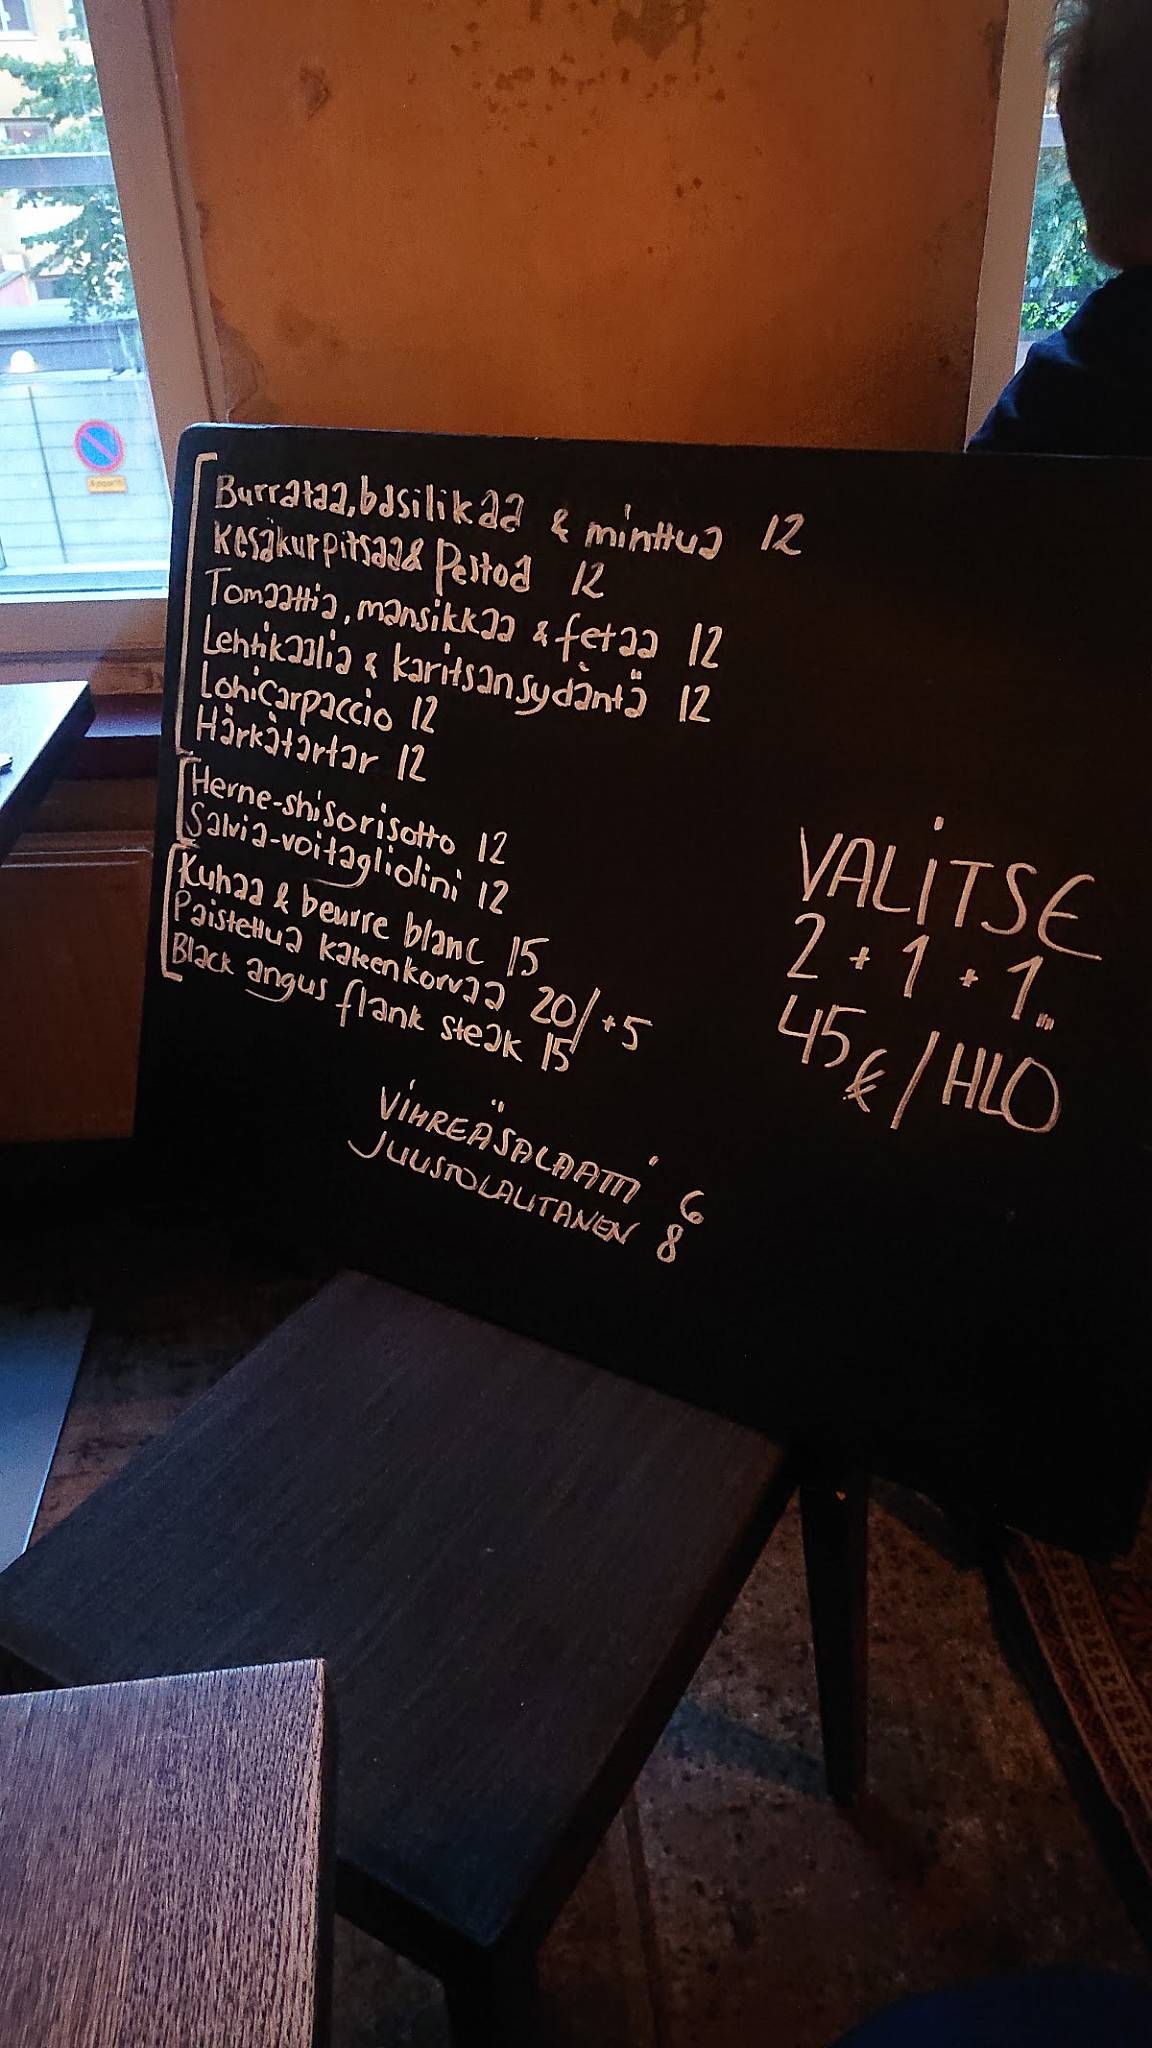 Burrataa, basilikaa & minttua 12
Kesäkurpitsaa & Pestoa 12
Tomaattia, mansikkaa & fetaa 12
Lehtikaalia & karitsansydäntä 12
Lohicarpaccio 12
Härkätartar 12
Herne-shisorisotto 12
Salvia-voitagliolini 12
Kuhaa & beurre blanc 15
Paistettua kateenkorvaa 20/+5
Black angus flank steak 15
VIHREÄSALAATTI 6
JUUSTOLAUTANEN 8
VALITSE
2 + 1 + 1...
45€/HLO